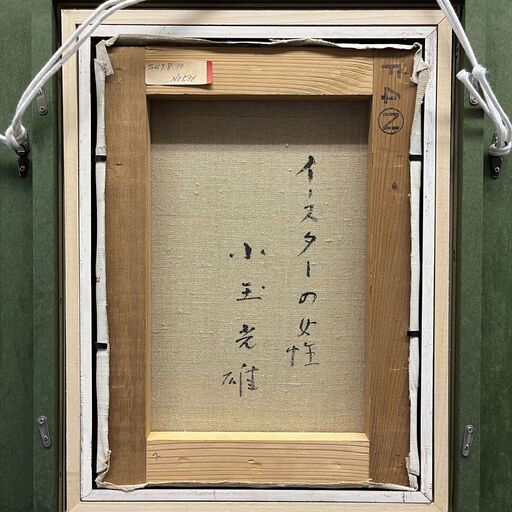 S47.8.10
No534
F4
イースターの女性
小玉光雄